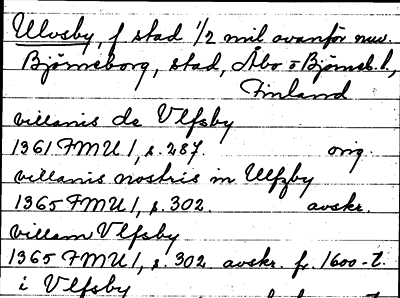 Ulvsby, f stad 1/2 mil ovanför nuv.
Björneborg, stad, Åbo o Björneb. l,
Finland
villanis de Vlfsby
1361 FMU 1, s. 287. orig.
villanis nostris in Ulfzby
1365 FMU 1, s. 302. avskr.
villam Vlfsby
1365 FMU 1, s. 302 avskr. fr. 1600-t.
i Vlfsby